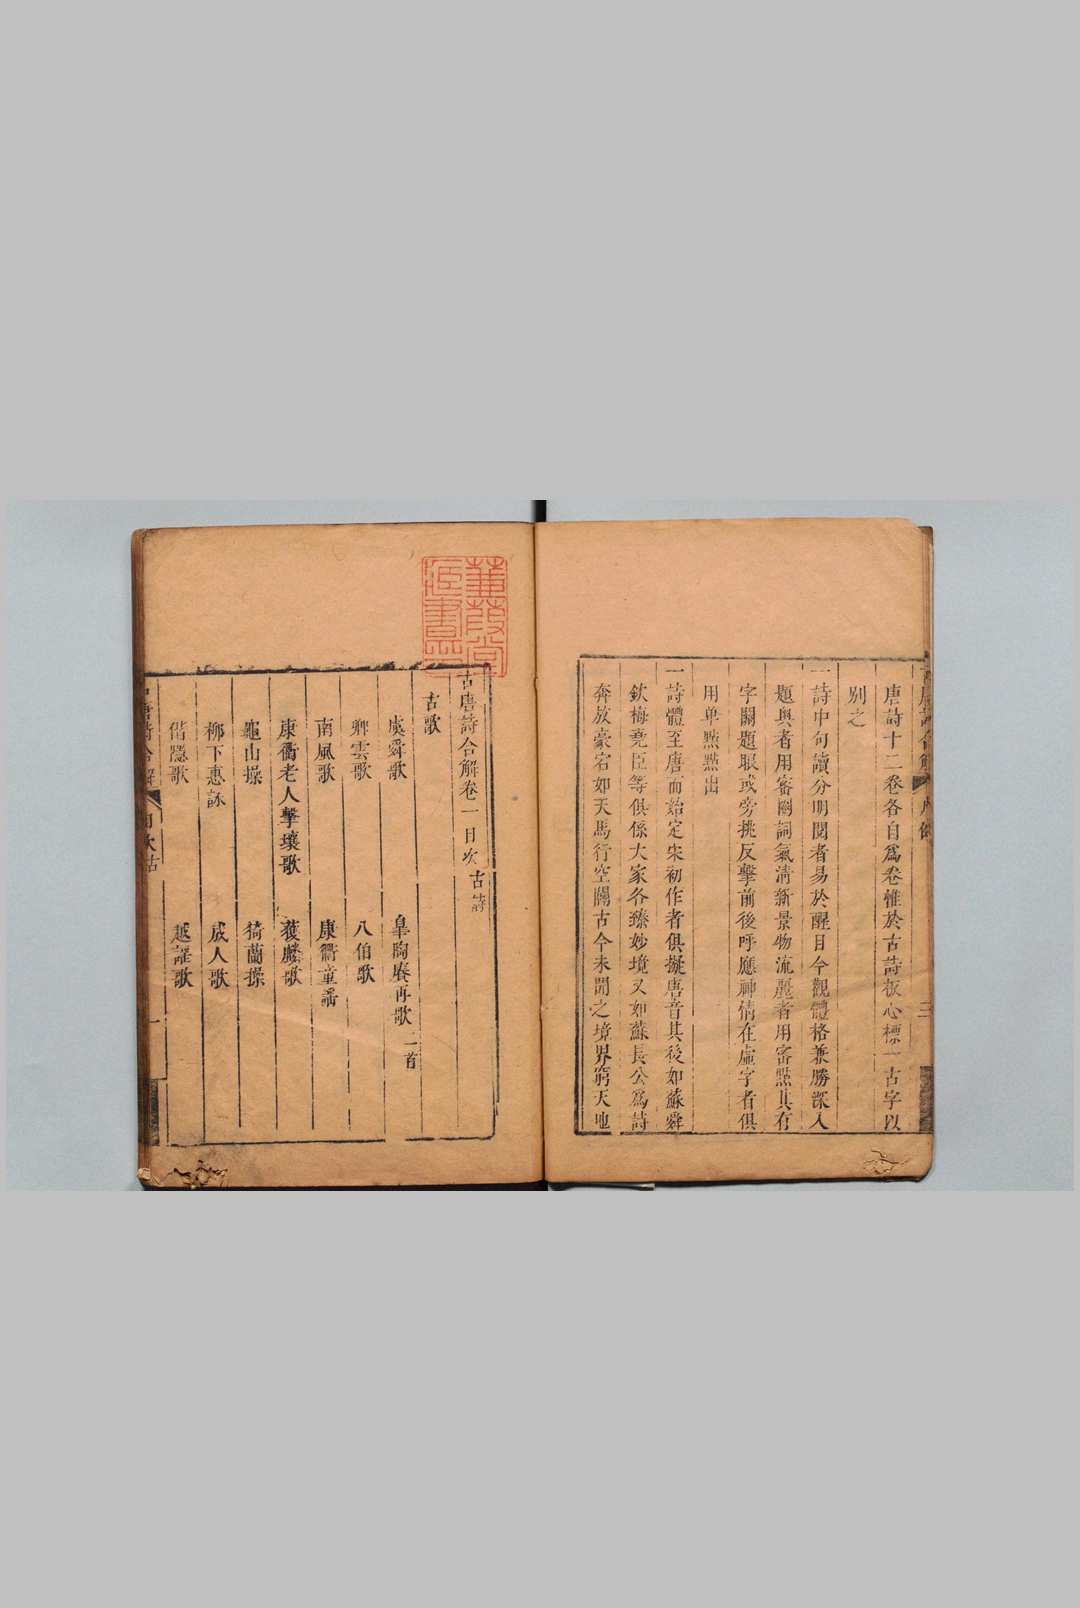 唐詩十二卷各自爲卷惟於古詩板心標一古字以
別之
一詩中句讀分明閱者易於醒目今觀體格兼勝深入
題奧者用密圈詞氣清新景物流麗者用密點其有
字關題眼或旁挑反擊前後呼應神情在虛字者俱
用单點點出
一詩體至唐而始定宋初作者俱擬唐音其後如蘇舜
欽梅堯臣等俱係大家各臻妙境又如蘇長公爲詩
奔放豪宕如天馬行空闢古今未開之境界窮天地
蒹葭堂
藏書印
古唐詩合解卷一目次 古詩
古歌
虞舜歌 皐陶賡再歌 二首
卿雲歌 八伯歌
南風歌 康衢童謡
康衢老人擊壤歌 獲麟歌
龜山操 猗蘭操
柳下惠誄 成人歌
偕隱歌 越謡歌
唐詩合解 目次古 一